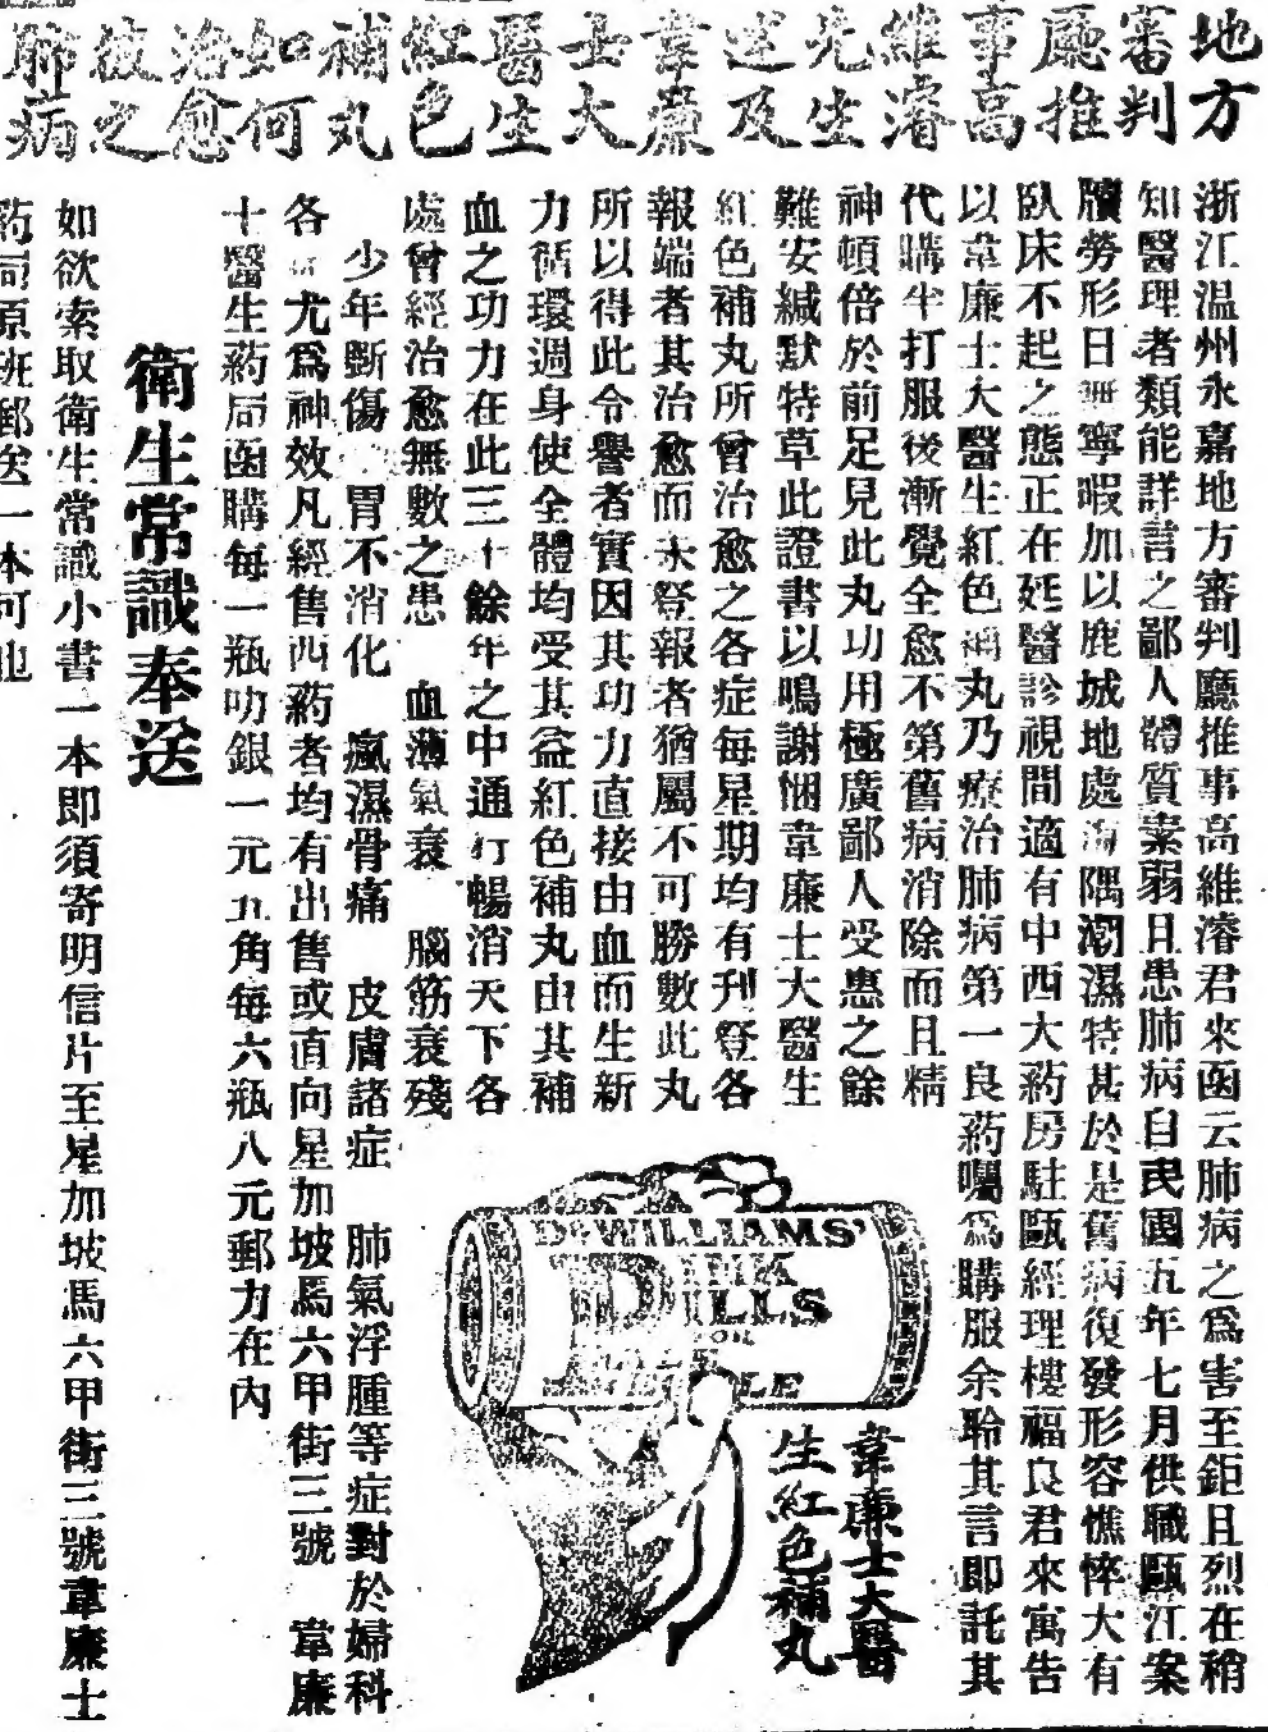 地方
審判
廳推
事高
維濬
先生
述及
韋廉
士大
醫生
紅色
補丸
如何
治愈
彼之
肺病
浙江温州永嘉地方審判廳推事高維濬君來函云肺病之爲害至鉅且烈在稍
知醫理者類能詳言之鄙人體質素弱且患肺病自民國五年七月供職甌江案
牘勞形日無寧暇加以鹿城地處海隅潮濕特甚於是舊病復發形容憔悴大有
臥床不起之態正在延醫診視間適有中西大葯房駐甌經理樓福良君來寓告
以韋廉士大醫生紅色補丸乃療治肺病第一良葯囑爲購服余聆其言即託其
代購半打服後漸覺全愈不第舊病消除而且精
神頓倍於前足見此丸功用極廣鄙人受惠之餘
難安緘默特草此證書以鳴謝悃韋廉士大醫生
紅色補丸所曾治愈之各症每星期均有刋登各
報端者其治愈而未登報者猶屬不可勝數此丸
所以得此令譽者實因其功力直接由血而生新
力循環週身使全體均受其益紅色補丸由其補
血之功力在此三十餘年之中通行暢消天下各
處曾經治愈無數之患 血薄氣衰 腦筋衰殘
少年斲傷 胃不消化 瘋濕骨痛 皮膚諸症 肺氣浮腫等症對於婦科
各 尤爲神效凡經售西葯者均有出售或直向星加坡馬六甲街三號 韋廉
士醫生葯局函購每一瓶叻銀一元五角每六瓶八元郵力在內
DR. WILLIAMS'
PINK
PILLS
FOR
PALE PEOPLE
韋廉士大醫
生紅色補丸
衛生常識奉送
如欲索取衛生常識小書一本即須寄明信片至星加坡馬六甲街三號韋廉士
葯局原班郵送一本可也